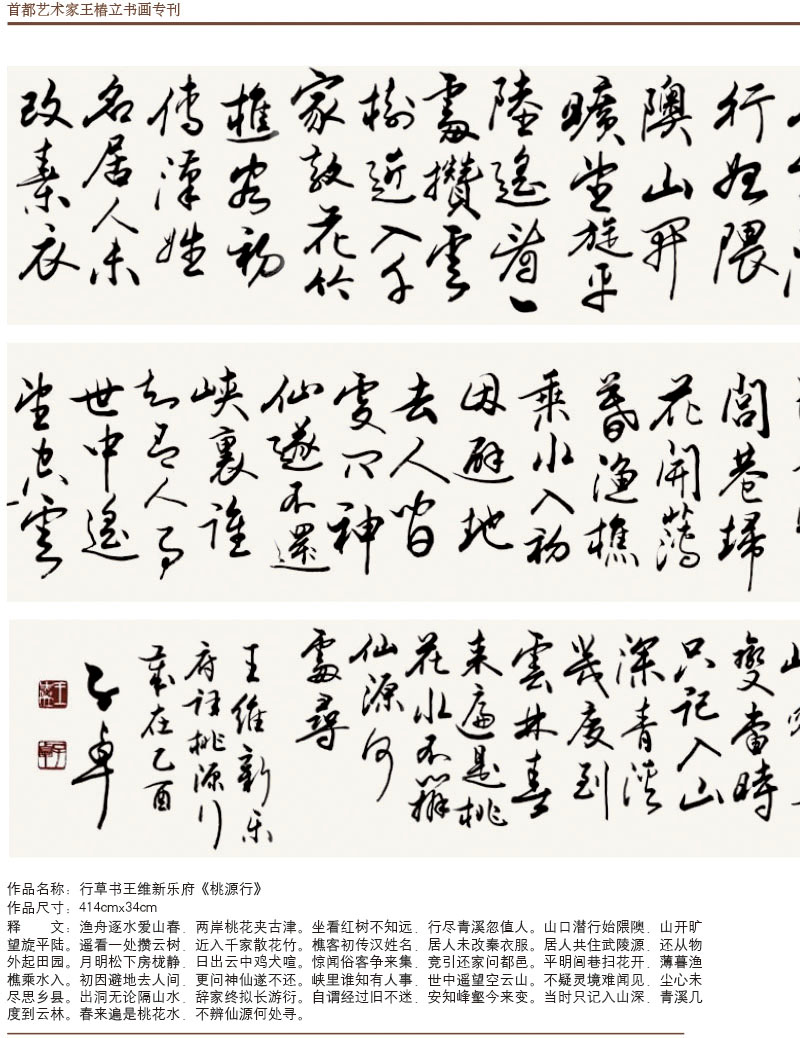 首都艺术家王椿立书画专刊
行始隈
隩山開
曠望旋平
陸遙看一
處攢雲
樹近入千
家散花竹
樵客初
傳漢姓
名居人未
改秦衣
閭巷掃
花開薄
暮漁樵
乘水入初
因避地
去人間
更問神
仙遂不還
峽裏誰
知有人事
世中遙
望空雲
變當時
只記入山
深青溪
幾度到
雲林春
來遍是桃
花水不辨
仙源何
處尋
王維新乐
府詩桃源行
歲在乙酉
子卓
作品名称：行草书王维新乐府《桃源行》
作品尺寸：414cmx34cm
释　　文：渔舟逐水爱山春，两岸桃花夹古津。坐看红树不知远，行尽青溪忽值人。山口潜行始隈隩，山开旷
望旋平陆。遥看一处攒云树，近入千家散花竹。樵客初传汉姓名，居人未改秦衣服。居人共住武陵源，还从物
外起田园。月明松下房栊静，日出云中鸡犬喧。惊闻俗客争来集，竞引还家问都邑。平明闾巷扫花开，薄暮渔
樵乘水入。初因避地去人间，更问神仙遂不还。峡里谁知有人事，世中遥望空云山。不疑灵境难闻见，尘心未
尽思乡县。出洞无论隔山水，辞家终拟长游衍。自谓经过旧不迷，安知峰壑今来变。当时只记入山深，青溪几
度到云林。春来遍是桃花水，不辨仙源何处寻。